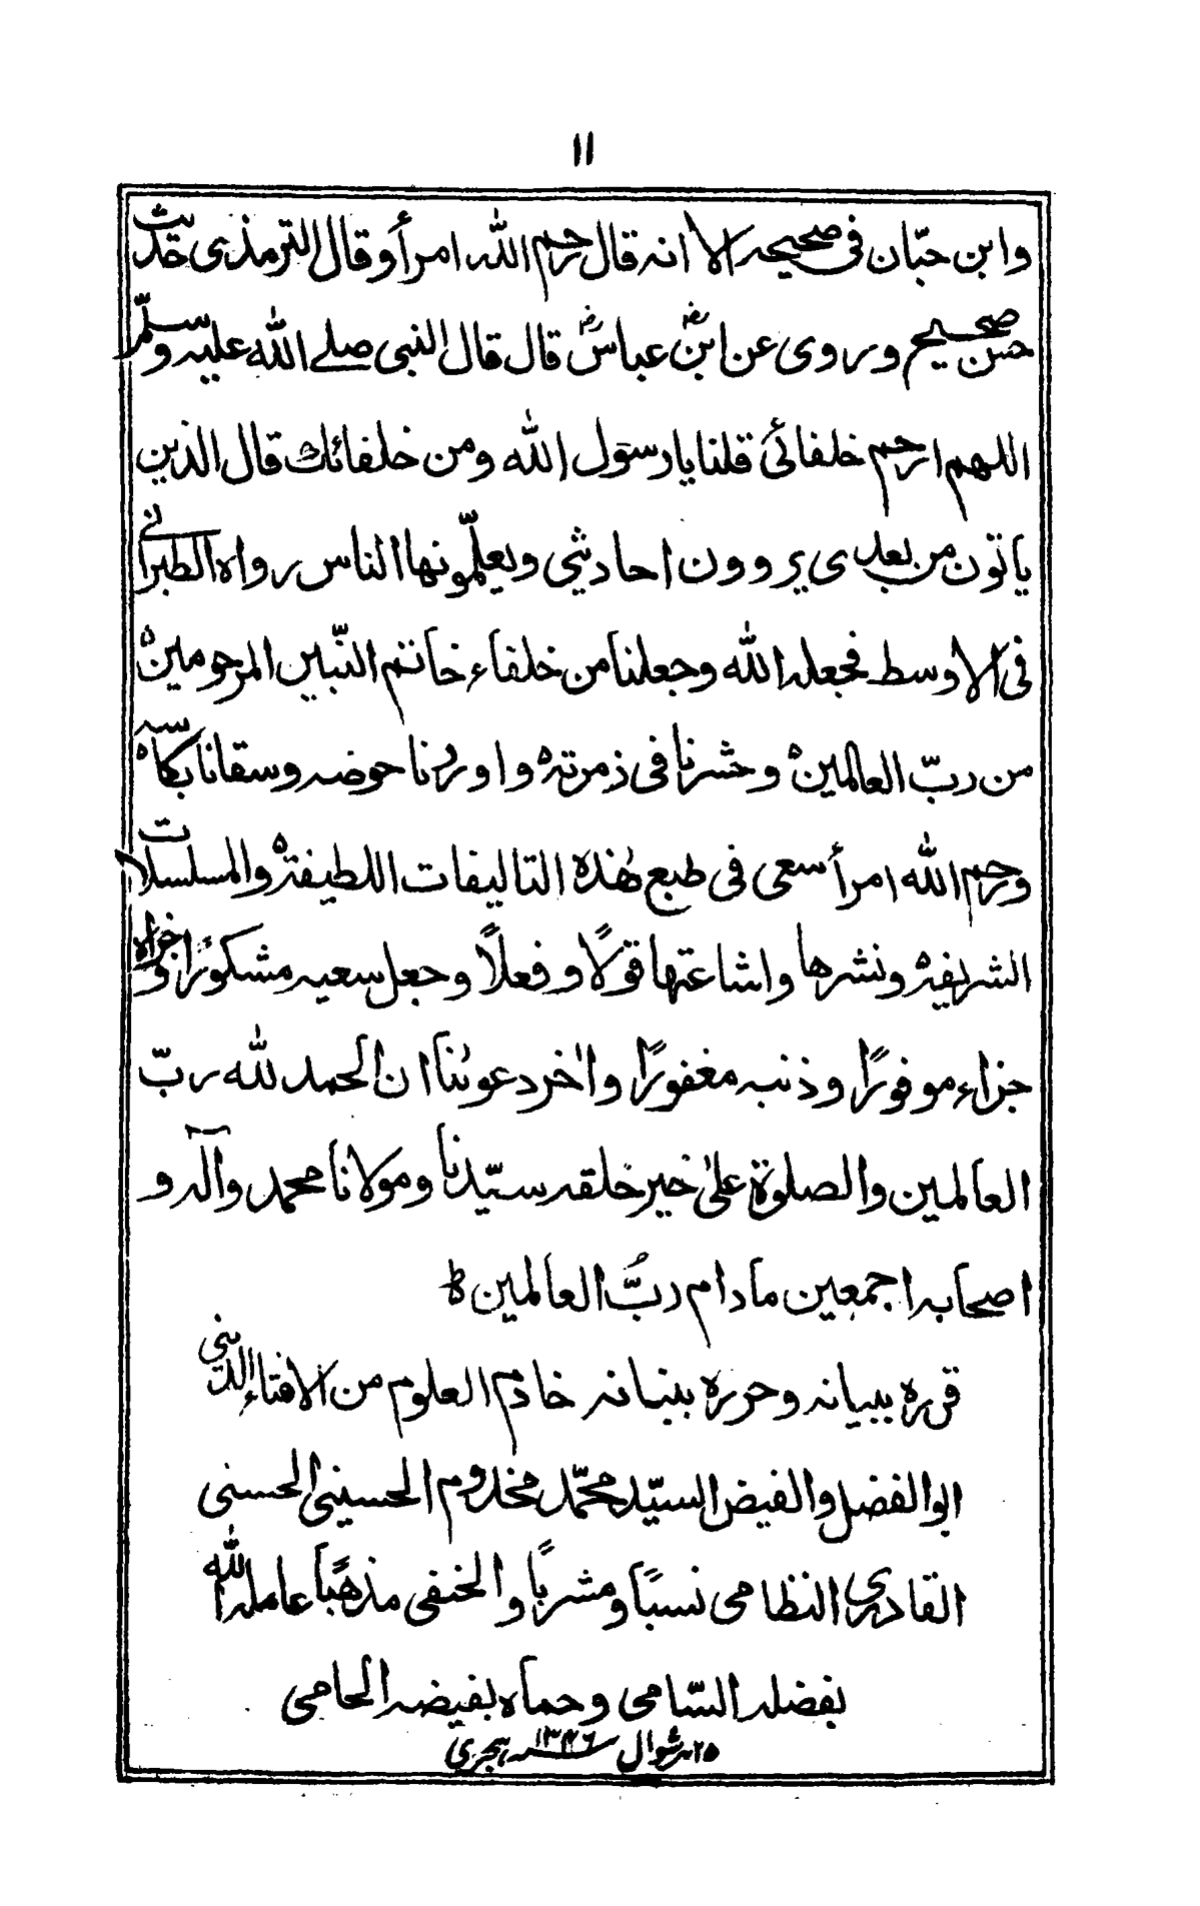 ١١
وابن حبّان فى صحيحہ الا انہ قال رحم اللہ امرأ وقال الترمذى حديث
حسن صحيح وروى عن ابنؓ عباسؓ قال قال النبى صلے اللہ عليہ وسلّم
اللهم ارحم خلفائى قلنا يا رسول اللہ ومن خلفائك قال الذين
ياتون من بعدى يروون احاديثى ويعلّمونها الناس رواه الطبرانے
فى الاوسط فجعلہ اللہ وجعلنا من خلفاء خاتم النّبيين المرحومينہ
من ربّ العالمينہ وحشرنا فى زمرتہ واوردنا حوضہ وسقانا بكاسہ
ورحم اللہ امرأ سعى فى طبع هٰذه التاليفات اللطيفة والمسلسلات
الشريفہ ونشرها واشاعتها قولًا وفعلًا وجعل سعيہ مشكورًا وجزاه
جزاء موفورًا وذنبہ مغفورًا واٰخر دعوٰنا ان الحمد للہ ربّ
العالمين والصلوٰة علىٰ خير خلقہ سيّدنا ومولانا محمد وآلہ و
اصحابہ اجمعين مادام ربُّ العالمين ط
قرره ببيانہ وحرره ببنانہ خادم العلوم من الافتاء الدينى
ابو الفضل والفيض السيّد محمّد مخدوم الحسينى الحسنى
القادرى النظامى نسبًا ومشربًا والحنفى مذهبًا عاملہ اللہ
بفضلہ السّامى وحماه بفيضہ الحامى
٢٥ شوال سنہ ١٣٢٦ ہجرى